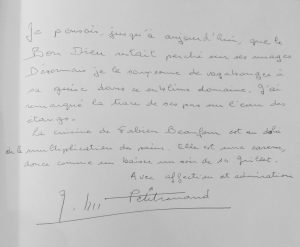 Je pensais, jusqu'à aujourd'hui, que le
Bon Dieu était perché sur ses nuages
Désormais je le soupçonne de vagabonder à
sa guise dans ce sublime domaine. J'ai
remarqué la trace de ses pas sur l'eau des
étangs.
La cuisine de Fabien Beaufour est au delà
de la multiplication des pains. Elle est une caresse,
douce comme un baiser un soir de 14 Juillet.
Avec affection et admiration
Petitrenaud